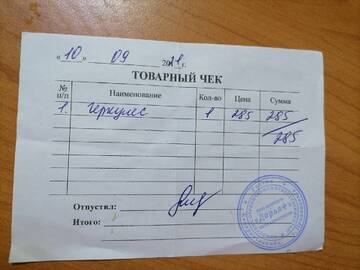 « 10 » 09 2021 г.
ТОВАРНЫЙ ЧЕК
№ п/п Наименование Кол-во Цена Сумма
1. геркулес 1 285 285
285
Отпустил:
Итого: